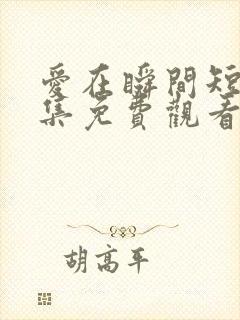 愛在瞬間短
集免費觀看
胡高平